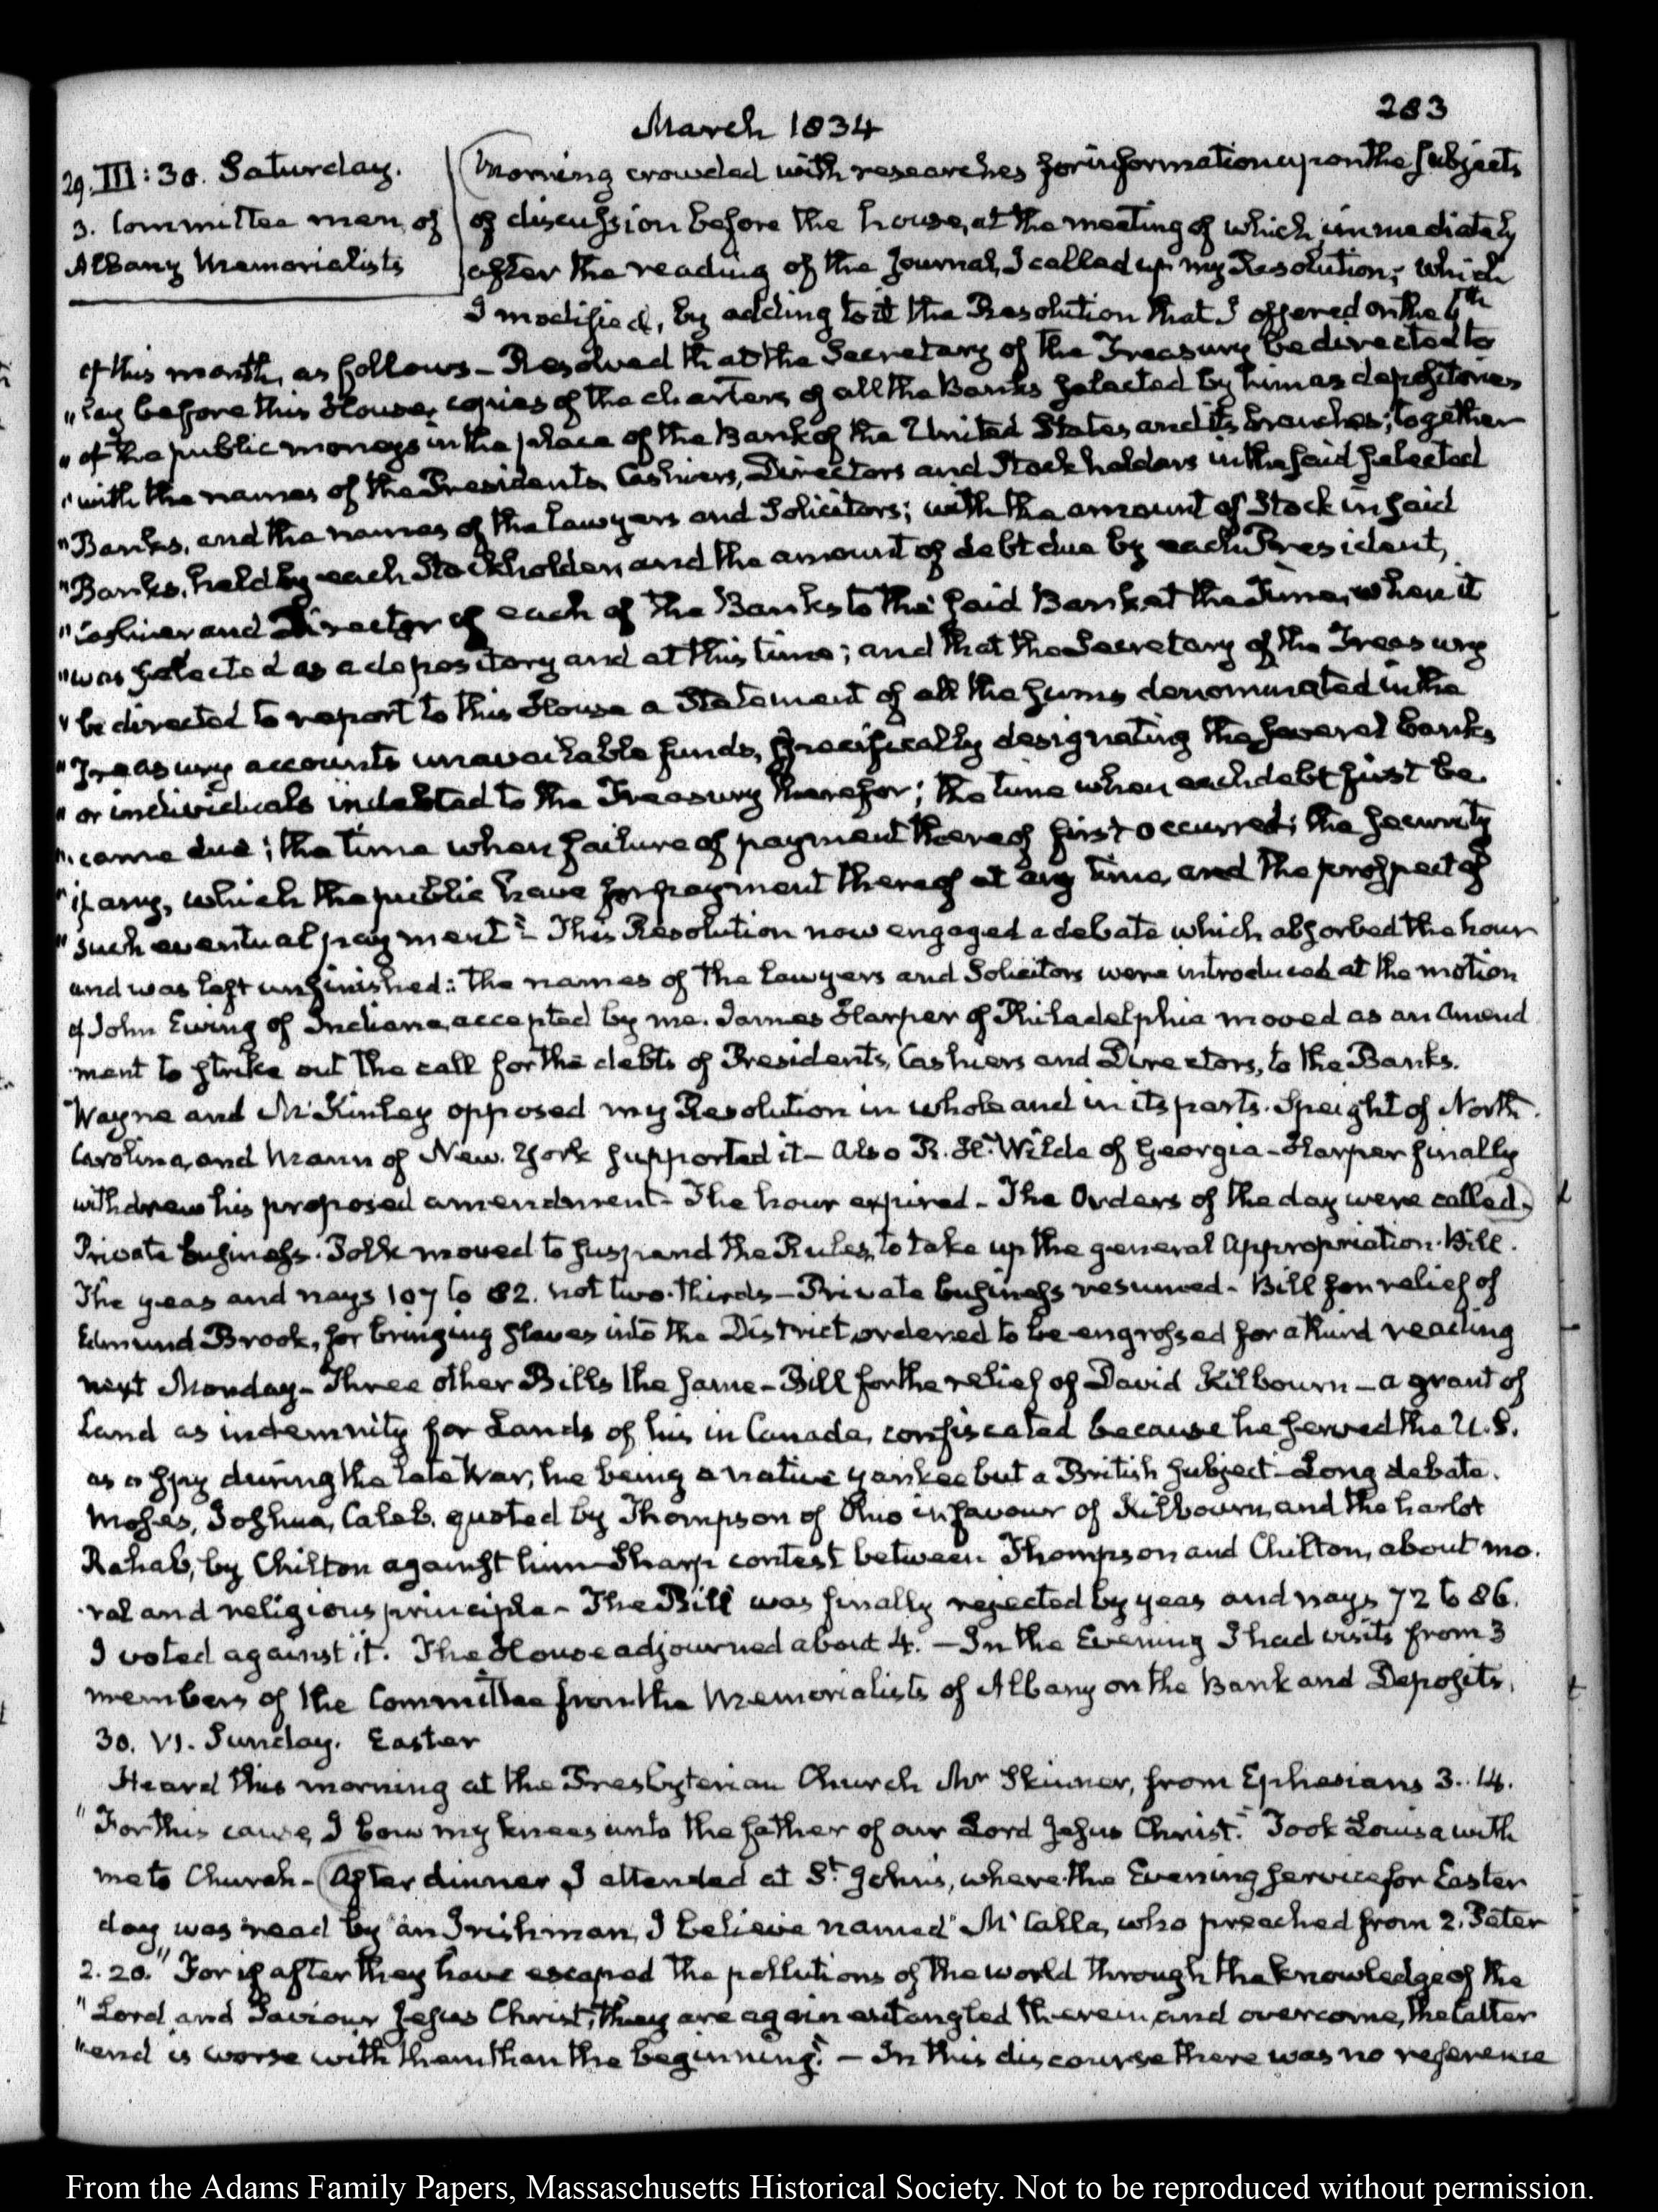 283
March 1834
29. III: 30. Saturday.
3. Committee men of
Albany Memorialists
Morning crowded with researches for information upon the subjects
of discussion before the house, at the meeting of which, immediately
after the reading of the Journal, I called up my Resolution; which
I modified, by adding to it the Resolution that I offered on the 6th
of this month, as follows — Resolved that the Secretary of the Treasury be directed to
"lay before this House, copies of the charters of all the Banks selected by him as depositories
"of the public moneys in the place of the Bank of the United States and its branches; together
"with the names of the Presidents, Cashiers, Directors and Stockholders in the said selected
"Banks, and the names of the Lawyers and Solicitors; with the amount of Stock in said
"Banks, held by each Stockholder, and the amount of debt due by each President,
"Cashier and Director of each of the Banks to the said Bank at the Time, when it
"was selected as a depository and at this time; and that the Secretary of the Treasury
"be directed to report to this House a Statement of all the sums denominated in the
"Treasury accounts unavailable funds, specifically designating the several banks
"or individuals indebted to the Treasury therefor; the time when each debt first be
"came due; the time when failure of payment thereof first occurred; the security
"if any, which the public have for payment thereof at any time, and the prospect of
"such eventual payment" — This Resolution now engaged a debate which absorbed the hour
and was left unfinished: the names of the Lawyers and Solicitors were introduced at the motion
of John Ewing of Indiana, accepted by me. James Harper of Philadelphia moved as an amend
ment to strike out the call for the debts of Presidents, Cashiers and Directors, to the Banks.
Wayne and McKinley opposed my Resolution in whole and in its parts. Speight of North
Carolina, and Mann of New-York supported it — also R. H. Wilde of Georgia — Harper finally
withdrew his proposed amendment — The hour expired — The Orders of the day were called.
Private business. Polk moved to suspend the Rules, to take up the general Appropriation Bill.
The yeas and nays 107 to 82. not two-thirds — Private business resumed — Bill for relief of
Edmund Brook, for bringing slaves into the District, ordered to be engrossed for a third reading
next Monday — Three other Bills the same — Bill for the relief of David Kilbourn — a grant of
Land as indemnity for Lands of his in Canada, confiscated because he served the U.S.
as a spy during the late War; he being a native yankee but a British subject — Long debate.
Moses, Joshua, Caleb, quoted by Thompson of Ohio in favour of Kilbourn, and the harlot
Rahab, by Chilton against him — Sharp contest between Thompson and Chilton, about mo
ral and religious principle — The Bill was finally rejected by yeas and nays 72 to 86.
I voted against it. The House adjourned about 4. — In the Evening I had visits from 3
members of the Committee from the Memorialists of Albany on the Bank and Deposits.
30. VI. Sunday. Easter
Heard this morning at the Presbyterian Church Mr Skinner, from Ephesians 3. 14.
"For this cause, I bow my knees unto the father of our Lord Jesus Christ." Took Louisa with
me to Church — After dinner I attended at St. John's, where the Evening service for Easter
day was read by an Irishman, I believe named McCalla, who preached from 2. Peter
2. 20. "For if after they have escaped the pollutions of the world through the knowledge of the
"Lord and Saviour Jesus Christ, they are again entangled therein, and overcome, the latter
"end is worse with them than the beginning." — In this discourse there was no reference
From the Adams Family Papers, Massachusetts Historical Society. Not to be reproduced without permission.